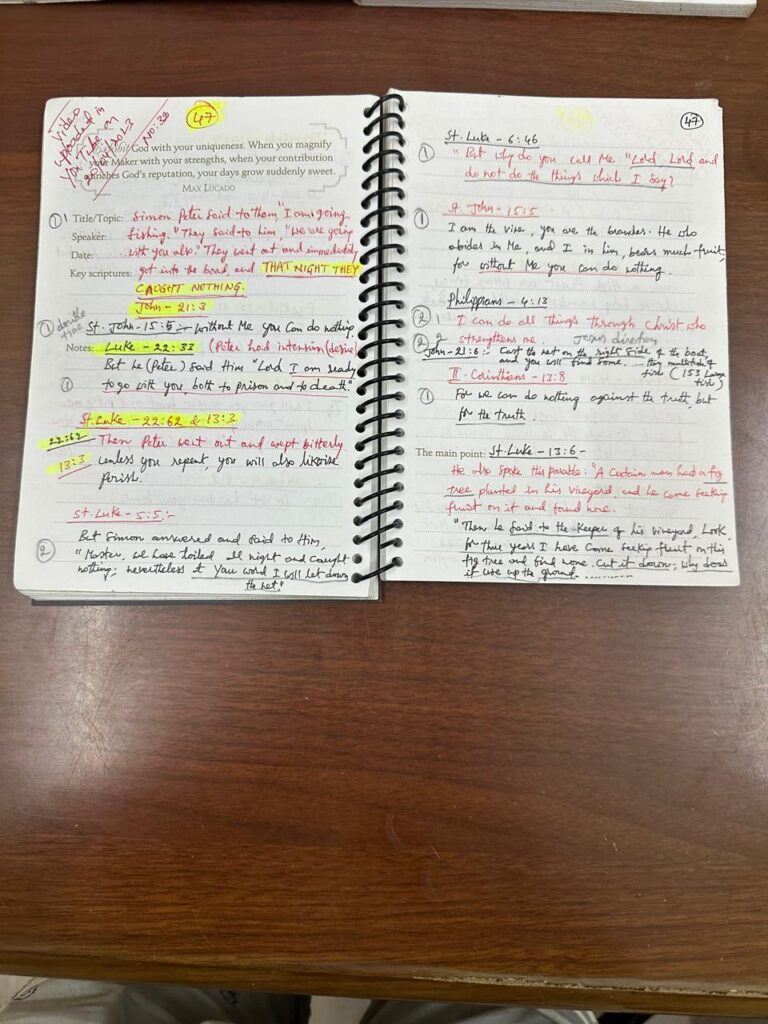 Video
uploaded in
YouTube on
NO:38
47
God with your uniqueness. When you magnify
your Maker with your strengths, when your contribution
enriches God's reputation, your days grow suddenly sweet.
MAX LUCADO
① Title/Topic: Simon Peter said to them, "I am going
Speaker: fishing." They said to him, "we are going
Date: with you also." They went out and immediately
Key scriptures: got into the boat, and THAT NIGHT THEY
CAUGHT NOTHING.
John - 21:3
① double time St. John - 15:5 :- without Me you can do nothing
Notes: Luke - 22:33 (Peter had intension (desire)
But he (Peter) said Him "Lord I am ready
① to go with you, both to prison and to death."
St. Luke - 22:62 & 13:3
22:62 Then Peter went out and wept bitterly.
13:3 unless you repent, you will also likewise
perish.
St. Luke - 5:5 :-
But Simon answered and said to Him,
② "Master, we have toiled all night and caught
nothing; nevertheless at your word I will let down
the net."
47
St. Luke - 6:46
① "But why do you call Me "Lord Lord and
do not do the things which I say?
St. John - 15:5
① I am the vine, you are the branches. He who
abides in Me, and I in him, bears much fruit;
for without Me you can do nothing.
Philippians - 4:13
② I can do all things through Christ who
② strengthens me. Jesus direction
John - 21:6 :- Cast the net on the right side of the boat,
and you will find some. ... multitude of
fish (153 large
fish)
II - Corinthians - 13:8
① For we can do nothing against the truth, but
for the truth.
The main point: St. Luke - 13:6 -
He also spoke this parable: "A certain man had a fig
tree planted in his vineyard, and he came seeking
fruit on it and found none.
"Then he said to the keeper of his vineyard, Look,
for three years I have come seeking fruit on this
fig tree and find none. Cut it down; why does
it use up the ground. ..........